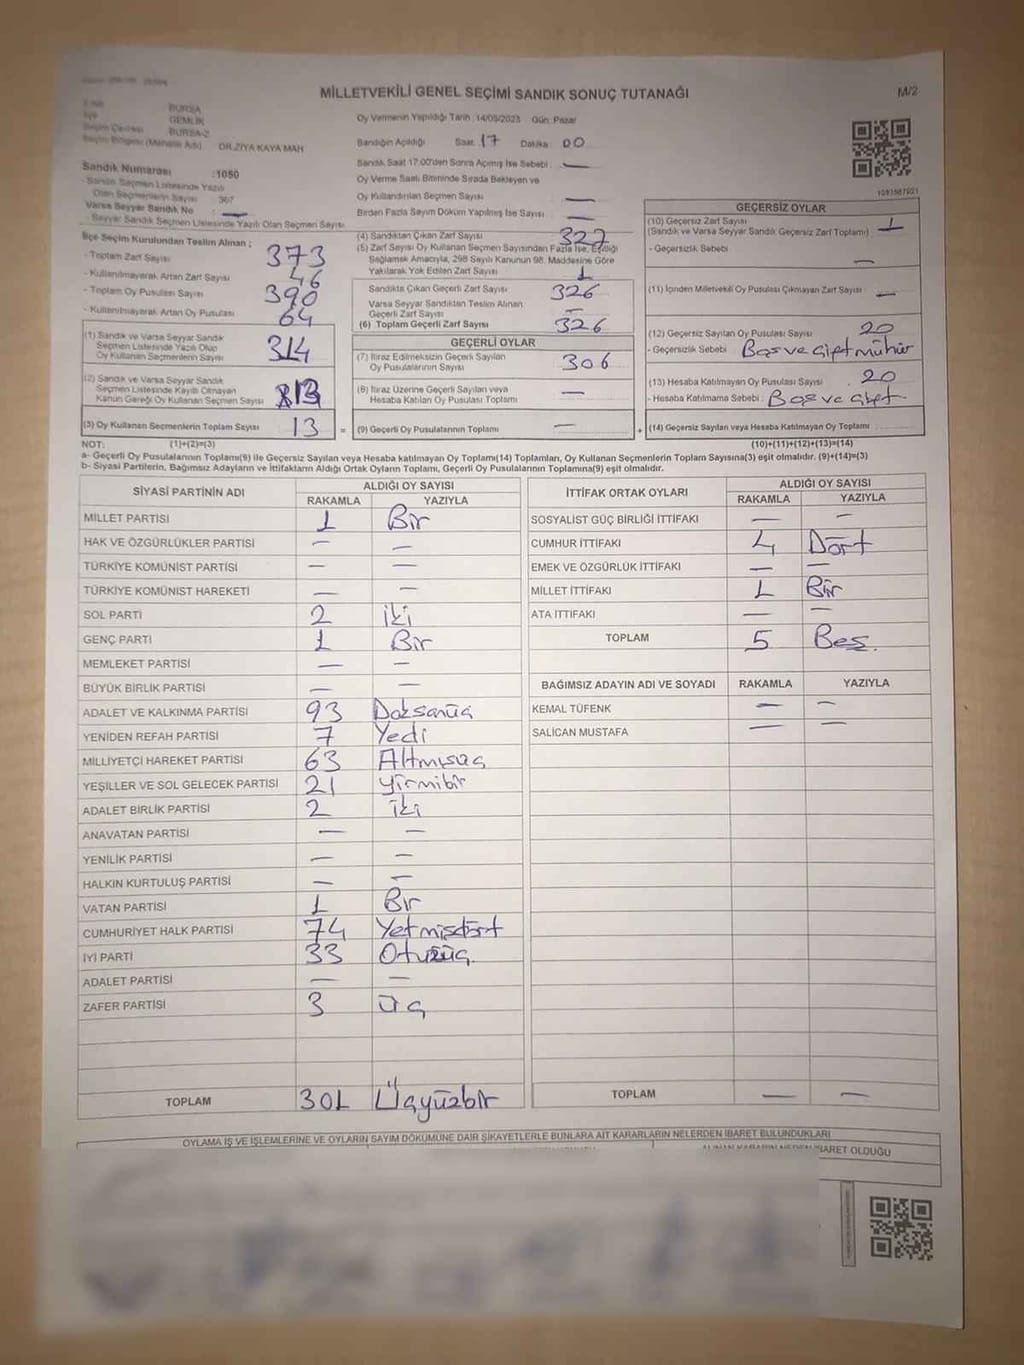 MİLLETVEKİLİ GENEL SEÇİMİ SANDIK SONUÇ TUTANAĞI
M/2
BURSA
GEMLİK
BURSA-2
DR.ZİYA KAYA MAH
Sandık Numarası :1050
- Sandık Seçmen Listesinde Yazılı
Olan Seçmenlerin Sayısı 367
Varsa Seyyar Sandık No —
- Seyyar Sandık Seçmen Listesinde Yazılı Olan Seçmen Sayısı
İlçe Seçim Kurulundan Teslim Alınan ;
- Toplam Zarf Sayısı 373
- Kullanılmayarak Artan Zarf Sayısı 46
- Toplam Oy Pusulası Sayısı 390
- Kullanılmayarak Artan Oy Pusulası 64
(1) Sandık ve Varsa Seyyar Sandık
Seçmen Listesinde Yazılı Olup
Oy Kullanan Seçmenlerin Sayısı 314
(2) Sandık ve Varsa Seyyar Sandık
Seçmen Listesinde Kayıtlı Olmayan
Kanun Gereği Oy Kullanan Seçmen Sayısı 13
(3) Oy Kullanan Seçmenlerin Toplam Sayısı 13 =
Oy Vermenin Yapıldığı Tarih :14/05/2023 Gün: Pazar
Sandığın Açıldığı Saat: 17 Dakika 00
Sandık Saat 17:00'den Sonra Açılmış İse Sebebi : —
Oy Verme Saati Bitiminde Sırada Bekleyen ve
Oy Kullandırılan Seçmen Sayısı —
Birden Fazla Sayım Döküm Yapılmış İse Sayısı —
(4) Sandıktan Çıkan Zarf Sayısı 327
(5) Zarf Sayısı Oy Kullanan Seçmen Sayısından Fazla İse, Eşitliği
Sağlamak Amacıyla, 298 Sayılı Kanunun 98. Maddesine Göre
Yakılarak Yok Edilen Zarf Sayısı 1
Sandıkta Çıkan Geçerli Zarf Sayısı 326
Varsa Seyyar Sandıktan Teslim Alınan
Geçerli Zarf Sayısı —
(6) Toplam Geçerli Zarf Sayısı 326
GEÇERLİ OYLAR
(7) İtiraz Edilmeksizin Geçerli Sayılan
Oy Pusulalarının Sayısı 306
(8) İtiraz Üzerine Geçerli Sayılan veya
Hesaba Katılan Oy Pusulası Toplamı —
(9) Geçerli Oy Pusulalarının Toplamı — +
1091587021
GEÇERSİZ OYLAR
(10) Geçersiz Zarf Sayısı
(Sandık ve Varsa Seyyar Sandık Geçersiz Zarf Toplamı) 1
- Geçersizlik Sebebi —
(11) İçinden Milletvekili Oy Pusulası Çıkmayan Zarf Sayısı —
(12) Geçersiz Sayılan Oy Pusulası Sayısı 20
- Geçersizlik Sebebi Boş ve Çift mühür
(13) Hesaba Katılmayan Oy Pusulası Sayısı 20
- Hesaba Katılmama Sebebi : Boş ve Çift
(14) Geçersiz Sayılan veya Hesaba Katılmayan Oy Toplamı
NOT: (1)+(2)=(3) (10)+(11)+(12)+(13)=(14)
a- Geçerli Oy Pusulalarının Toplamı(9) ile Geçersiz Sayılan veya Hesaba katılmayan Oy Toplamı(14) Toplamları, Oy Kullanan Seçmenlerin Toplam Sayısına(3) eşit olmalıdır. (9)+(14)=(3)
b- Siyasi Partilerin, Bağımsız Adayların ve İttifakların Aldığı Ortak Oyların Toplamı, Geçerli Oy Pusulalarının Toplamına(9) eşit olmalıdır.
SİYASİ PARTİNİN ADI ALDIĞI OY SAYISI
RAKAMLA YAZIYLA
MİLLET PARTİSİ 1 Bir
HAK VE ÖZGÜRLÜKLER PARTİSİ — —
TÜRKİYE KOMÜNİST PARTİSİ — —
TÜRKİYE KOMÜNİST HAREKETİ — —
SOL PARTİ 2 iki
GENÇ PARTİ 1 Bir
MEMLEKET PARTİSİ — —
BÜYÜK BİRLİK PARTİSİ — —
ADALET VE KALKINMA PARTİSİ 93 Doksanüç
YENİDEN REFAH PARTİSİ 7 Yedi
MİLLİYETÇİ HAREKET PARTİSİ 63 Altmışüç
YEŞİLLER VE SOL GELECEK PARTİSİ 21 yirmibir
ADALET BİRLİK PARTİSİ 2 iki
ANAVATAN PARTİSİ — —
YENİLİK PARTİSİ — —
HALKIN KURTULUŞ PARTİSİ — —
VATAN PARTİSİ 1 Bir
CUMHURİYET HALK PARTİSİ 74 Yetmişdört
İYİ PARTİ 33 Otuzüç
ADALET PARTİSİ — —
ZAFER PARTİSİ 3 üç
TOPLAM 301 Üçyüzbir
İTTİFAK ORTAK OYLARI ALDIĞI OY SAYISI
RAKAMLA YAZIYLA
SOSYALİST GÜÇ BİRLİĞİ İTTİFAKI — —
CUMHUR İTTİFAKI 4 Dört
EMEK VE ÖZGÜRLÜK İTTİFAKI — —
MİLLET İTTİFAKI 1 Bir
ATA İTTİFAKI — —
TOPLAM 5 Beş.
BAĞIMSIZ ADAYIN ADI VE SOYADI RAKAMLA YAZIYLA
KEMAL TÜFENK — —
SALİCAN MUSTAFA — —
TOPLAM — —
OYLAMA İŞ VE İŞLEMLERİNE VE OYLARIN SAYIM DÖKÜMÜNE DAİR ŞİKAYETLERLE BUNLARA AİT KARARLARIN NELERDEN İBARET BULUNDUKLARI
İBARET OLDUĞU